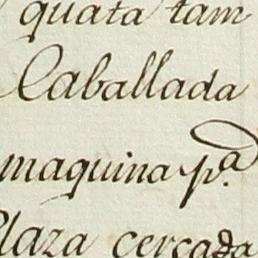 quata tam
Caballada
maquina p.ª
Plaza cercada